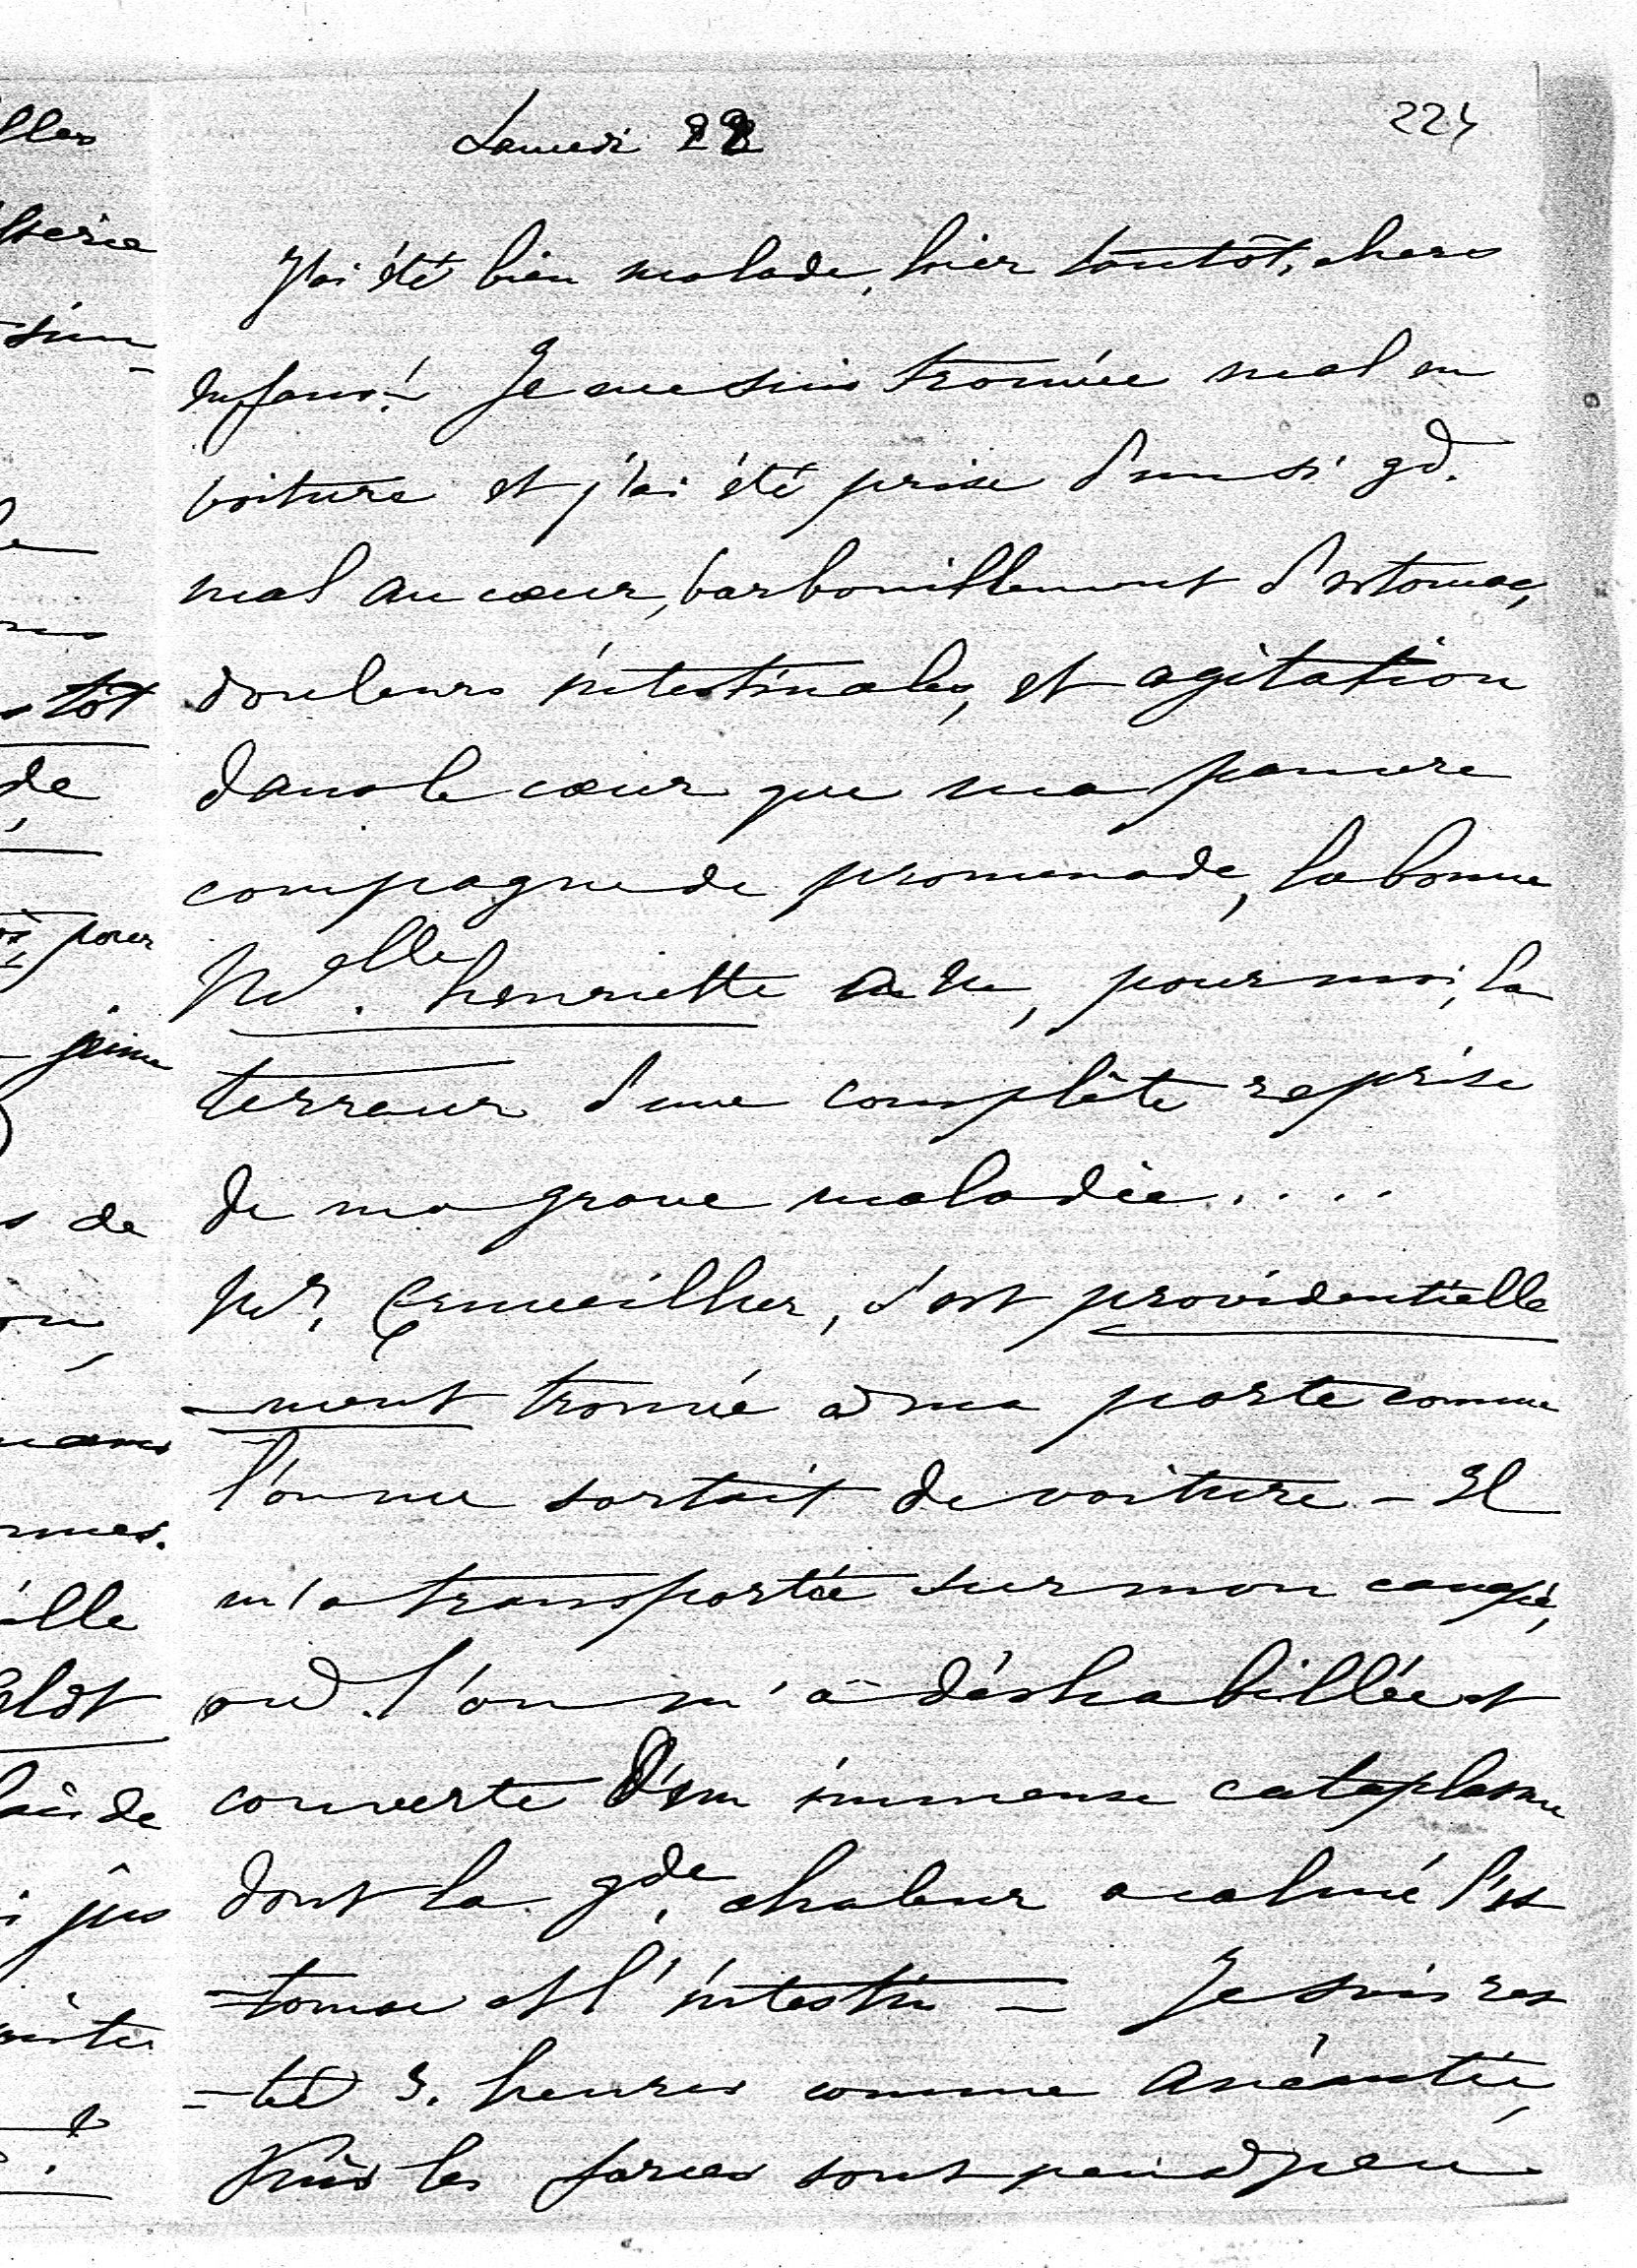 Samedi 22
224
J'ai été bien malade, hier tantôt, chers
enfans! Je me suis trouvée mal en
voiture et j'ai été prise d'un si gd.
mal au cœur, barbouillement d'estomac,
douleurs intestinales, et agitation
dans le cœur que ma pauvre
compagne de promenade, la bonne
Melle. henriette a eu, pour moi, la
terreur d'une complète reprise
de ma grave maladie....
Mr. Cruveilher, s'est providentielle
-ment trouvé à ma porte comme
l'on me sortait de voiture - Il
m'a transportée sur mon canapé,
où l'on m'a déshabillée et
couverte d'un immense cataplasme
dont la gde. chaleur a calmé l'es
-tomac et l'intestin - Je suis res
-tée 3. heures comme anéantie,
Puis les forces sont peu à peu